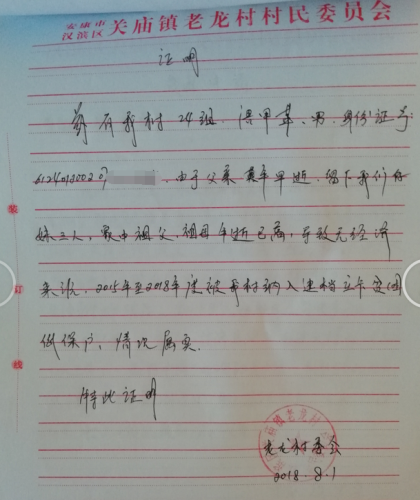 安康市
汉滨区 关庙镇老龙村村民委员会
证明
兹有我村24组 男、身份证号:
612401 由于父亲 早逝、留下我们
妹三人,家中祖父、祖母年逝已高,导致无经济
来源、2015年至2018年 被我村纳入建档立卡贫困
低保户、情况属实.
特此证明
装
订
线
老龙村委会
2018.8.1